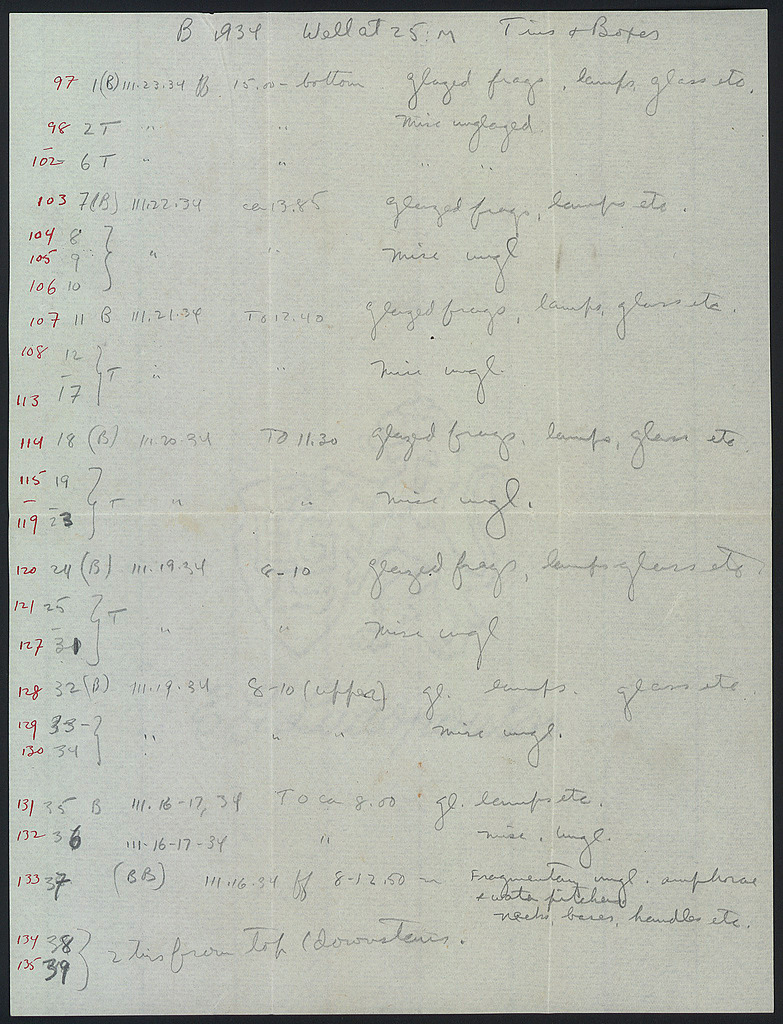 B 1934 Well at 25:M Tins + Boxes
97 1(B) 111.23.34 ff 15.00 - bottom glazed frags, lamps, glass etc.
98 2 T " " Misc unglazed
102 6 T " " " "
103 7(B) 111.22.34 ca 13.85 glazed frags, lamps etc.
104 8
105 9 } " " misc ungl
106 10
107 11 B 111.21.34 To 12.40 glazed frags, lamps, glass etc.
108 12
– } T " " misc ungl.
113 17
114 18 (B) 111.20.34 To 11.30 glazed frags, lamps, glass etc
115 19
– } T " " misc ungl.
119 23
120 24 (B) 111.19.34 8-10 glazed frags, lamps glass etc
121 25
– } T " " misc ungl
127 31
128 32 (B) 111.19.34 8-10 (upper) gl. lamps. glass etc
129 33
130 34 } " " " misc ungl.
131 35 B 111.16-17.34 To ca 8.00 gl. lamps etc.
132 36 111-16-17-34 " misc. ungl.
133 37 (BB) 111.16.34 ff 8-12.50 m Fragmentary ungl. amphorae
+ water pitchers
necks, bases, handles etc.
134 38
135 39 } 2 tins from top (downstairs.